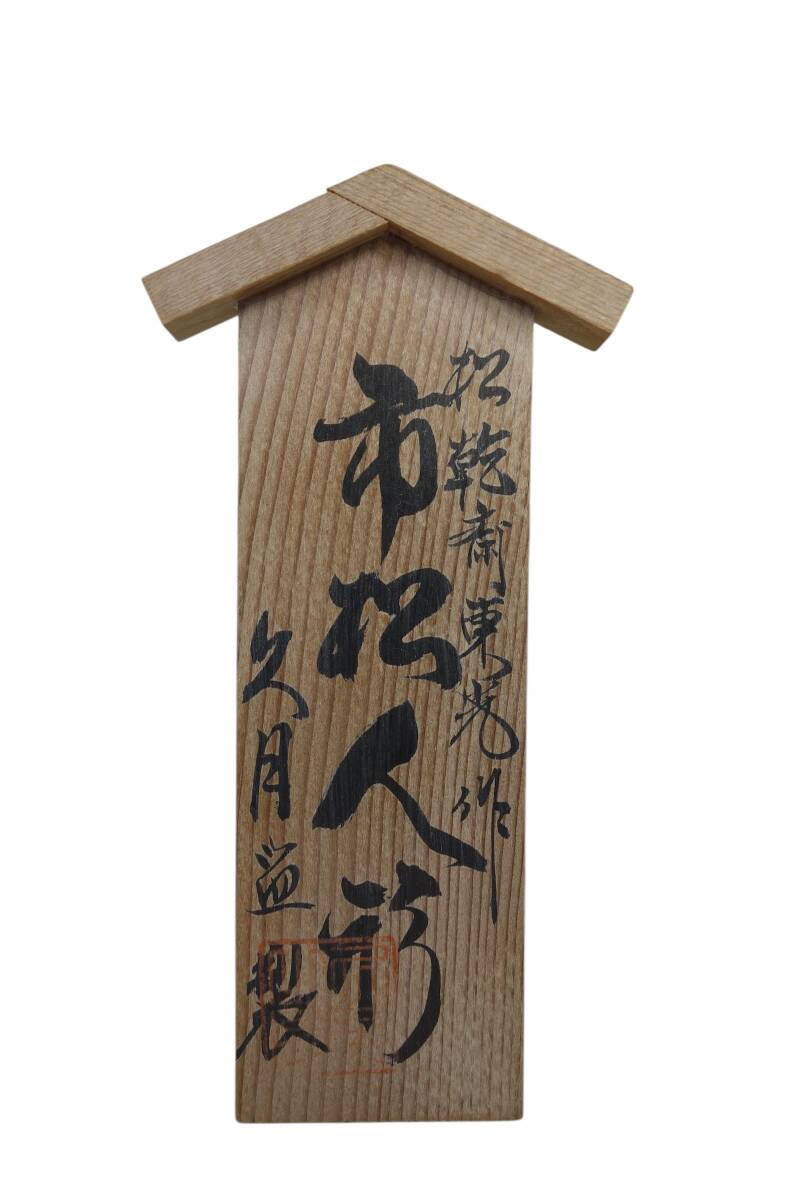 松乾斎東光作
市松人形
久月益製